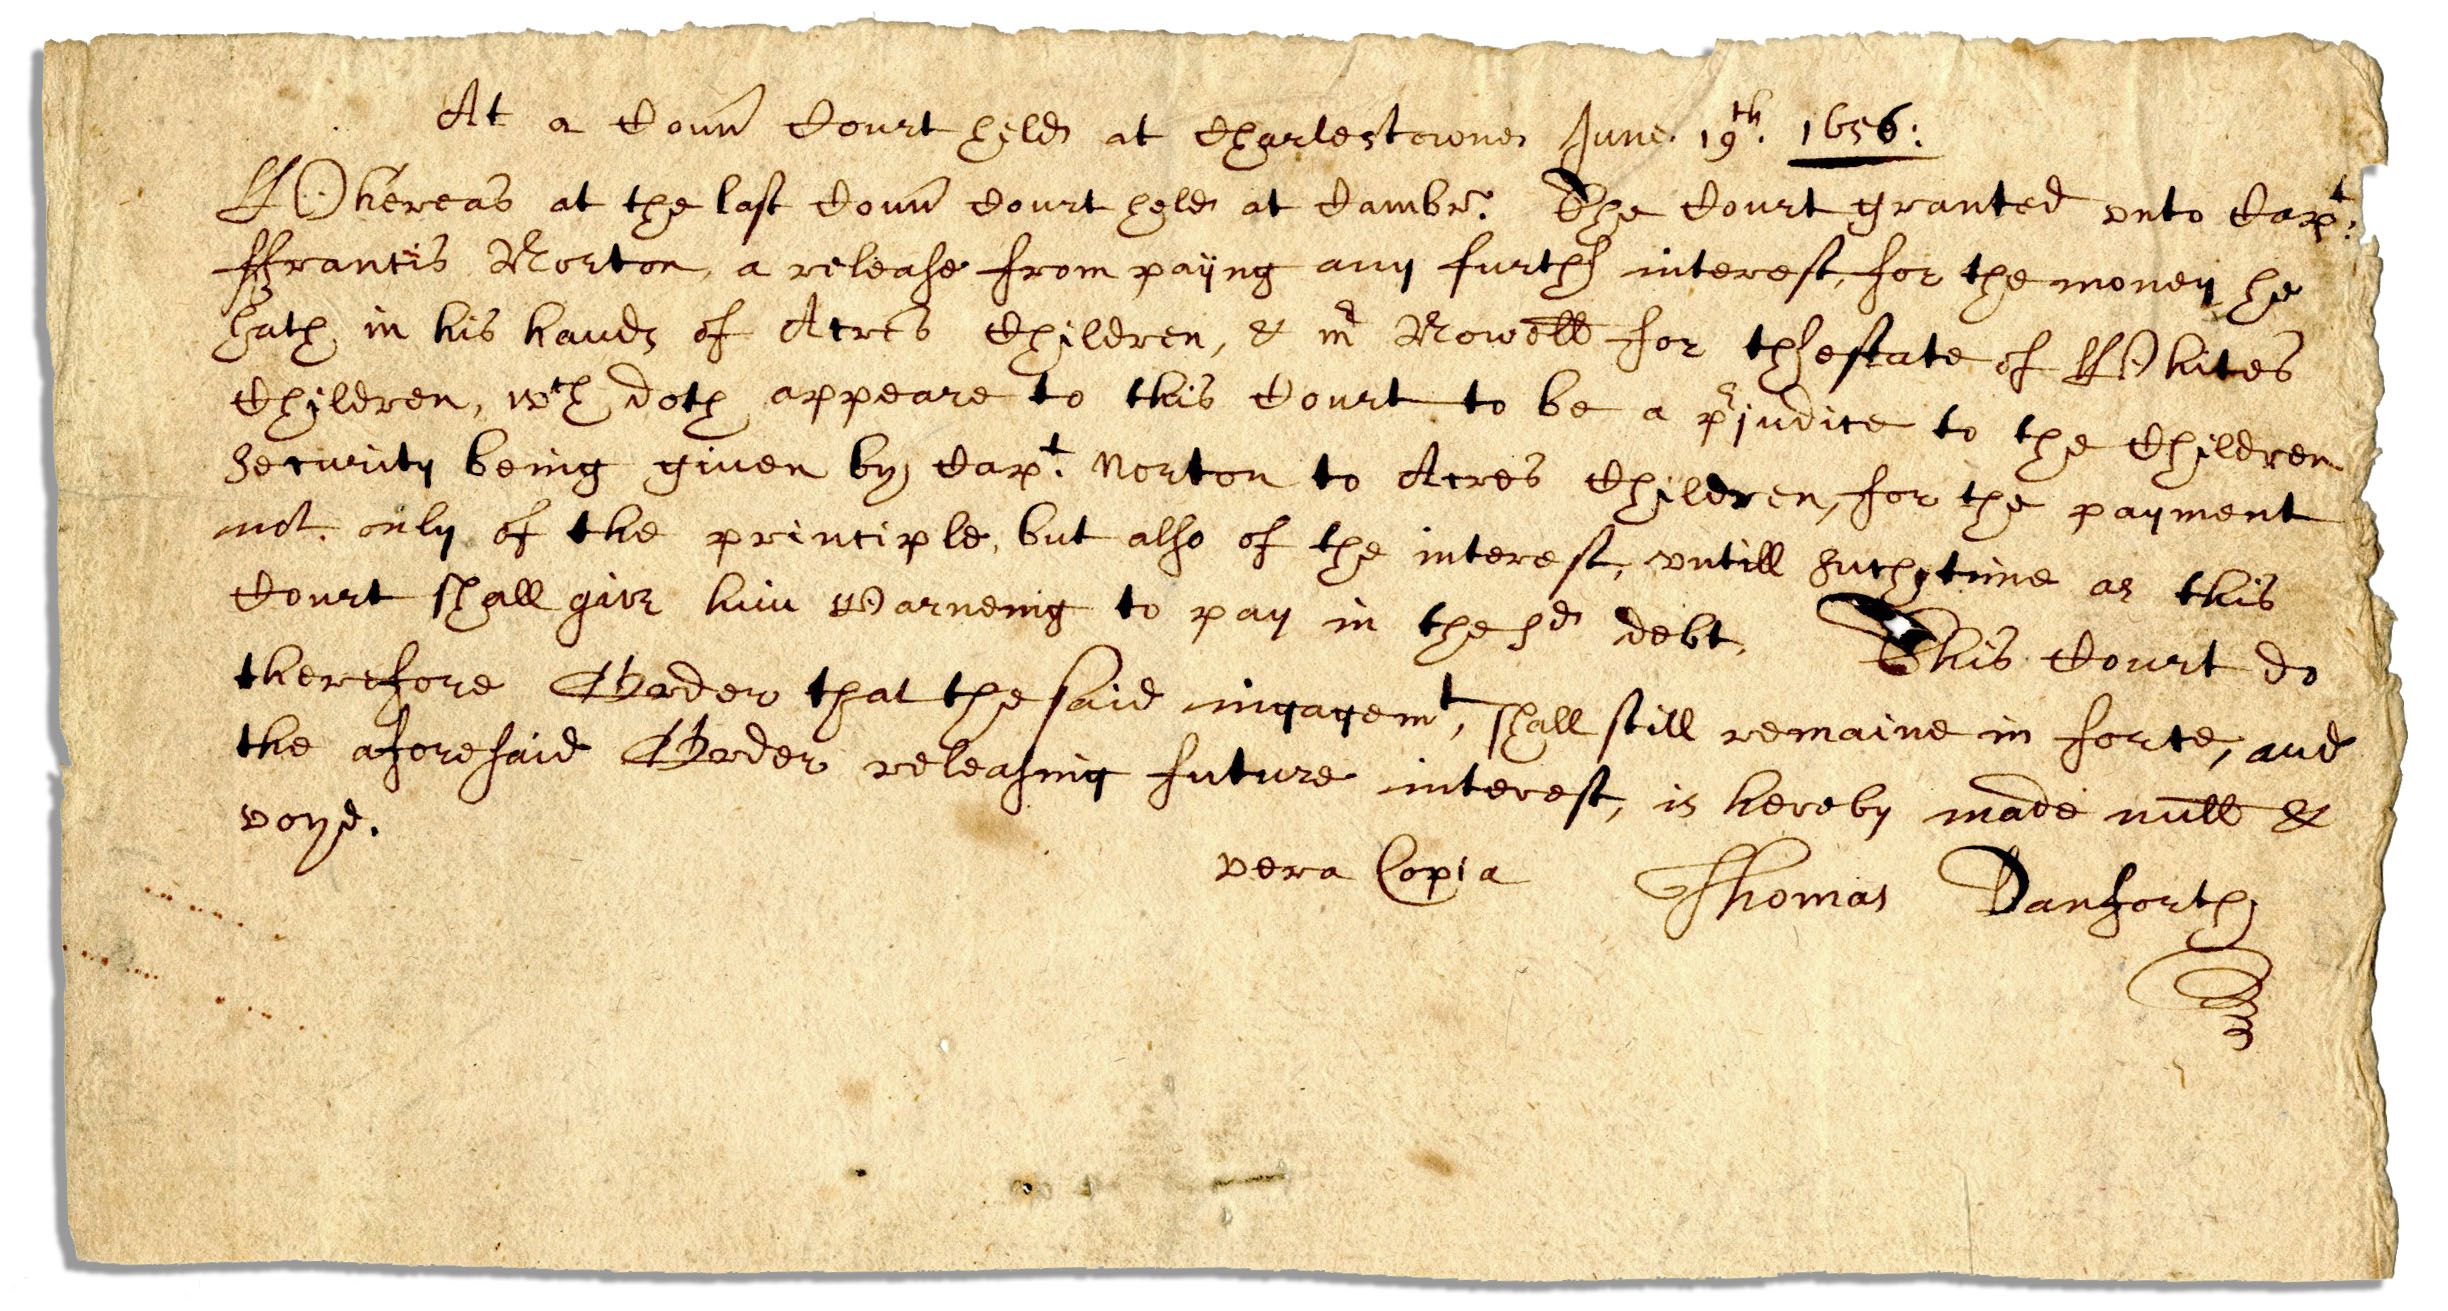 At a Coun̄ Court held at Charlestowne June. 19th. 1656:
Whereas at the last Coun̄ Court held at Cambr. The Court granted vnto Capt:
ffrancis Norton, a release from payng any further interest, for the money he
hath in his hands of Acres Children, & mr Nowell for the estate of Whites
Children, wch doth appeare to this Court to be a prjudice to the Children
Security being given by Capt. Norton to Acres Children, for the payment
not only of the principle, but also of the interest, vntill such time as this
Court shall give him warneing to pay in the sd debt. This Court do
therefore Order that the said ingagemt, shall still remaine in force, and
the aforesaid Order releasing future interest, is hereby made null &
voyd.
vera Copia Thomas Danforth